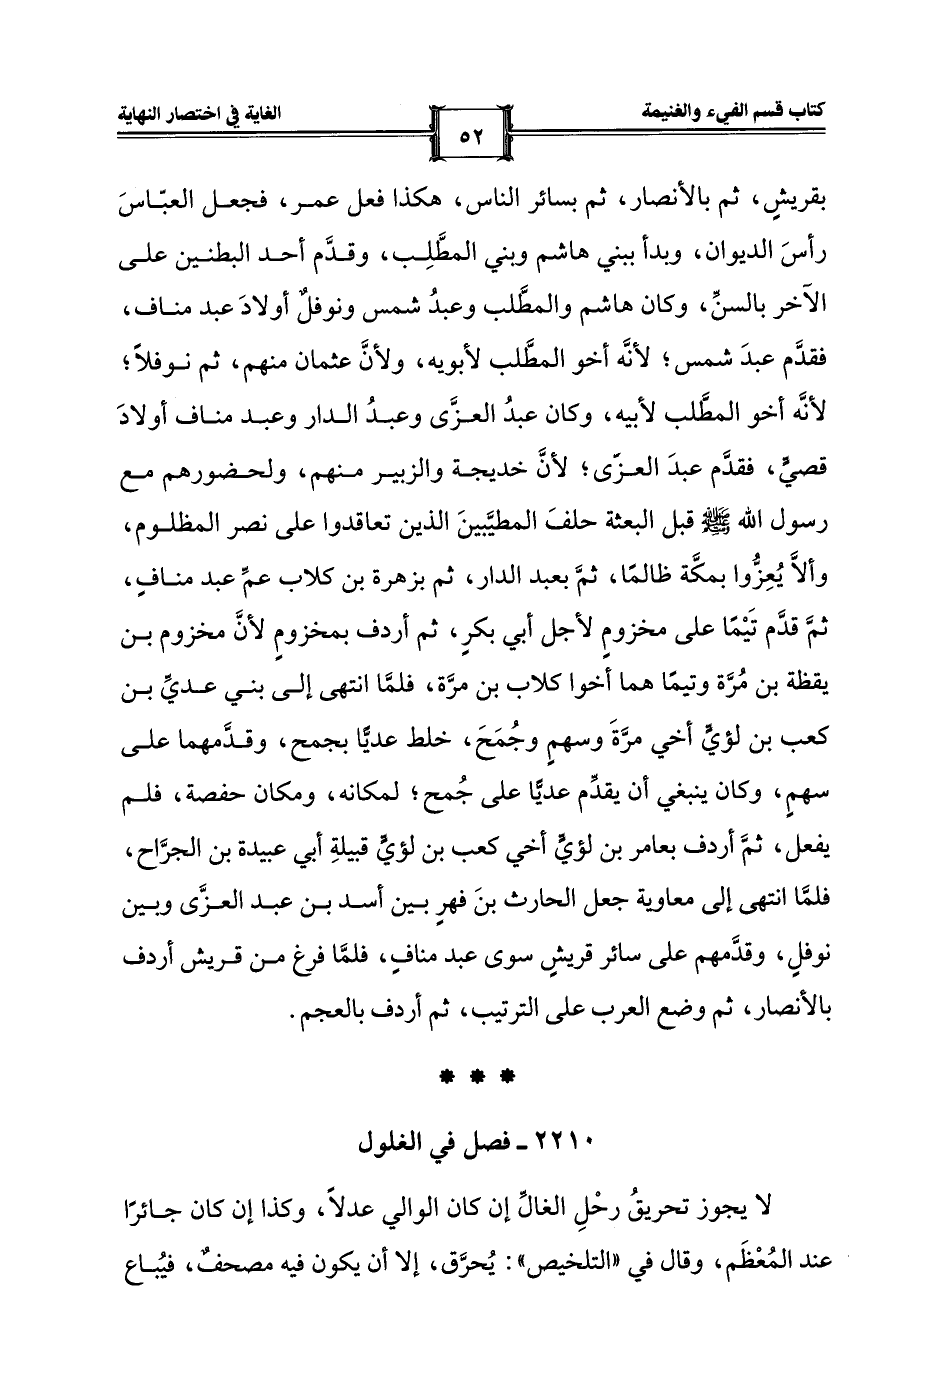 كتاب قسم الفيء والغنيمة
٥٢
الغاية في اختصار النهاية
بقريشٍ، ثم بالأنصار، ثم بسائر الناس، هكذا فعل عمر، فجعل العبّاسَ
رأسَ الديوان، وبدأ ببني هاشم وبني المطَّلِب، وقدَّم أحد البطنين على
الآخر بالسنِّ، وكان هاشم والمطَّلب وعبدُ شمس ونوفلٌ أولادَ عبد مناف،
فقدَّم عبدَ شمس؛ لأنَّه أخو المطَّلب لأبويه، ولأنَّ عثمان منهم، ثم نوفلاً؛
لأنَّه أخو المطَّلب لأبيه، وكان عبدُ العزَّى وعبدُ الدار وعبد مناف أولادَ
قصيٍّ، فقدَّم عبدَ العزّى؛ لأنَّ خديجة والزبير منهم، ولحضورهم مع
رسول الله ﷺ قبل البعثة حلفَ المطيَّبينَ الذين تعاقدوا على نصر المظلوم،
وألاَّ يُعِزُّوا بمكَّة ظالمًا، ثمَّ بعبد الدار، ثم بزهرة بن كلاب عمِّ عبد منافٍ،
ثمَّ قدَّم تَيْمًا على مخزومٍ لأجل أبي بكرٍ، ثم أردف بمخزومٍ لأنَّ مخزوم بن
يقظة بن مُرَّة وتيمًا هما أخوا كلاب بن مرَّة، فلمَّا انتهى إلى بني عديِّ بن
كعب بن لؤيٍّ أخي مرَّةَ وسهمٍ وجُمَحَ، خلط عديًّا بجمح، وقدَّمهما على
سهمٍ، وكان ينبغي أن يقدِّم عديًّا على جُمح؛ لمكانه، ومكان حفصة، فلم
يفعل، ثمَّ أردف بعامر بن لؤيٍّ أخي كعب بن لؤيٍّ قبيلةِ أبي عبيدة بن الجرَّاح،
فلمَّا انتهى إلى معاوية جعل الحارث بنَ فهرٍ بين أسد بن عبد العزَّى وبين
نوفلٍ، وقدَّمهم على سائر قريشٍ سوى عبد منافٍ، فلمَّا فرغ من قريش أردف
بالأنصار، ثم وضع العرب على الترتيب، ثم أردف بالعجم.
* * *
٢٢١٠ ـ فصل في الغلول
لا يجوز تحريقُ رحْلِ الغالِّ إن كان الوالي عدلاً، وكذا إن كان جائرًا
عند المُعْظَم، وقال في «التلخيص»: يُحرَّق، إلا أن يكون فيه مصحفٌ، فيُباع